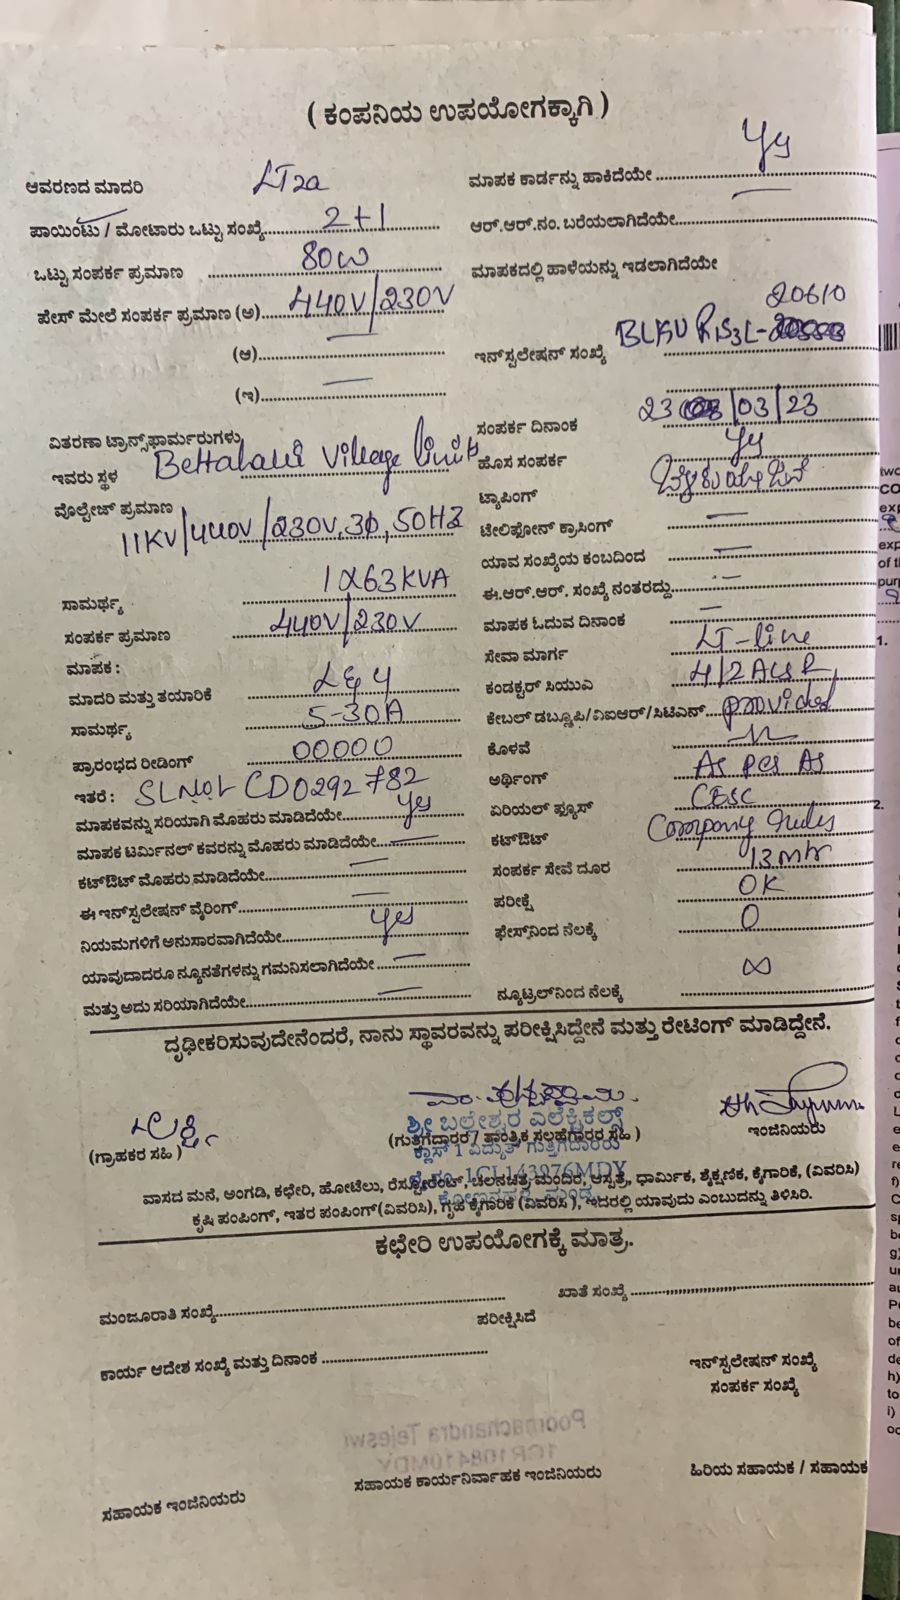 ( ಕಂಪನಿಯ ಉಪಯೋಗಕ್ಕಾಗಿ )
ಆವರಣದ ಮಾದರಿ LT2a
ಪಾಯಿಂಟು / ಮೋಟಾರು ಒಟ್ಟು ಸಂಖ್ಯೆ 2+1
ಒಟ್ಟು ಸಂಪರ್ಕ ಪ್ರಮಾಣ 80W
ಪೇಸ್ ಮೇಲೆ ಸಂಪರ್ಕ ಪ್ರಮಾಣ (ಅ) 440V/230V
(ಆ) —
(ಇ) —
ವಿತರಣಾ ಟ್ರಾನ್ಸ್‌ಫಾರ್ಮರುಗಳು
ಇವರು ಸ್ಥಳ Village limit
ವೊಲ್ಟೇಜ್ ಪ್ರಮಾಣ
11KV/440V/230V, 3Φ, 50HZ
ಸಾಮರ್ಥ್ಯ 1X63KVA
ಸಂಪರ್ಕ ಪ್ರಮಾಣ 440V/230V
ಮಾಪಕ :
ಮಾದರಿ ಮತ್ತು ತಯಾರಿಕೆ L&
ಸಾಮರ್ಥ್ಯ 5-30A
ಪ್ರಾರಂಭದ ರೀಡಿಂಗ್ 00000
ಇತರೆ : CD0292782
ಮಾಪಕವನ್ನು ಸರಿಯಾಗಿ ಮೊಹರು ಮಾಡಿದೆಯೇ yes
ಮಾಪಕ ಟರ್ಮಿನಲ್ ಕವರನ್ನು ಮೊಹರು ಮಾಡಿದೆಯೇ —
ಕಟ್‌ಔಟ್ ಮೊಹರು ಮಾಡಿದೆಯೇ —
ಈ ಇನ್‌ಸ್ಟಲೇಷನ್ ವೈರಿಂಗ್ —
ನಿಯಮಗಳಿಗೆ ಅನುಸಾರವಾಗಿದೆಯೇ yes
ಯಾವುದಾದರೂ ನ್ಯೂನತೆಗಳನ್ನು ಗಮನಿಸಲಾಗಿದೆಯೇ —
ಮತ್ತು ಅದು ಸರಿಯಾಗಿದೆಯೇ —
ಮಾಪಕ ಕಾರ್ಡನ್ನು ಹಾಕಿದೆಯೇ yes
ಆರ್.ಆರ್.ನಂ. ಬರೆಯಲಾಗಿದೆಯೇ —
ಮಾಪಕದಲ್ಲಿ ಹಾಳೆಯನ್ನು ಇಡಲಾಗಿದೆಯೇ
20610
ಇನ್‌ಸ್ಟಲೇಷನ್ ಸಂಖ್ಯೆ
ಸಂಪರ್ಕ ದಿನಾಂಕ 23/03/23
ಹೊಸ ಸಂಪರ್ಕ yes
ಟ್ಯಾಪಿಂಗ್
ಟೇಲಿಫೋನ್ ಕ್ರಾಸಿಂಗ್ —
ಯಾವ ಸಂಖ್ಯೆಯ ಕಂಬದಿಂದ —
ಈ.ಆರ್.ಆರ್. ಸಂಖ್ಯೆ ನಂತರದ್ದು —
ಮಾಪಕ ಓದುವ ದಿನಾಂಕ —
ಸೇವಾ ಮಾರ್ಗ LT-line
ಕಂಡಕ್ಟರ್ ಸಿಯುವಿ
ಕೇಬಲ್ ಡಬ್ಲೂಪಿ/ವಿಐಆರ್/ಸಿಟಿಎನ್ provided
ಕೊಳವೆ
ಅರ್ಥಿಂಗ್ As per As
ಏರಿಯಲ್ ಫ್ಯೂಸ್ CESC
ಕಟ್‌ಔಟ್ Company rules
ಸಂಪರ್ಕ ಸೇವೆ ದೂರ 13mtr
ಪರೀಕ್ಷೆ OK
ಫೇಸ್‌ನಿಂದ ನೆಲಕ್ಕೆ 0
ನ್ಯೂಟ್ರಲ್‌ನಿಂದ ನೆಲಕ್ಕೆ ∞
ದೃಢೀಕರಿಸುವುದೇನೆಂದರೆ, ನಾನು ಸ್ಥಾವರವನ್ನು ಪರೀಕ್ಷಿಸಿದ್ದೇನೆ ಮತ್ತು ರೇಟಿಂಗ್ ಮಾಡಿದ್ದೇನೆ.
ಶ್ರೀ ಬಲೇಶ್ವರ ಎಲೆಕ್ಟ್ರಿಕಲ್ಸ್
(ಗ್ರಾಹಕರ ಸಹಿ ) (ಗುತ್ತಿಗೆದಾರರ / ತಾಂತ್ರಿಕ ಸಲಹೆಗಾರರ ಸಹಿ ) ಇಂಜಿನಿಯರು
ಕ್ಲಾಸ್ 1 ವಿದ್ಯುತ್ ಗುತ್ತಿಗೆದಾರರು
1CL143976MDY
ವಾಸದ ಮನೆ, ಅಂಗಡಿ, ಕಛೇರಿ, ಹೋಟೆಲು, ರೆಸ್ಟೋರೆಂಟ್, ಚಲನಚಿತ್ರ ಮಂದಿರ, ಆಸ್ಪತ್ರೆ, ಧಾರ್ಮಿಕ, ಶೈಕ್ಷಣಿಕ, ಕೈಗಾರಿಕೆ, (ವಿವರಿಸಿ)
ಕೃಷಿ ಪಂಪಿಂಗ್, ಇತರ ಪಂಪಿಂಗ್(ವಿವರಿಸಿ), ಗೃಹ ಕೈಗಾರಿಕೆ (ವಿವರಿಸಿ ), ಇದರಲ್ಲಿ ಯಾವುದು ಎಂಬುದನ್ನು ತಿಳಿಸಿರಿ.
ಕಛೇರಿ ಉಪಯೋಗಕ್ಕೆ ಮಾತ್ರ.
ಮಂಜೂರಾತಿ ಸಂಖ್ಯೆ ಖಾತೆ ಸಂಖ್ಯೆ
ಪರೀಕ್ಷಿಸಿದೆ
ಕಾರ್ಯ ಆದೇಶ ಸಂಖ್ಯೆ ಮತ್ತು ದಿನಾಂಕ
ಇನ್‌ಸ್ಟಲೇಷನ್ ಸಂಖ್ಯೆ
ಸಂಪರ್ಕ ಸಂಖ್ಯೆ
ಸಹಾಯಕ ಇಂಜಿನಿಯರು ಸಹಾಯಕ ಕಾರ್ಯನಿರ್ವಾಹಕ ಇಂಜಿನಿಯರು ಹಿರಿಯ ಸಹಾಯಕ / ಸಹಾಯಕ